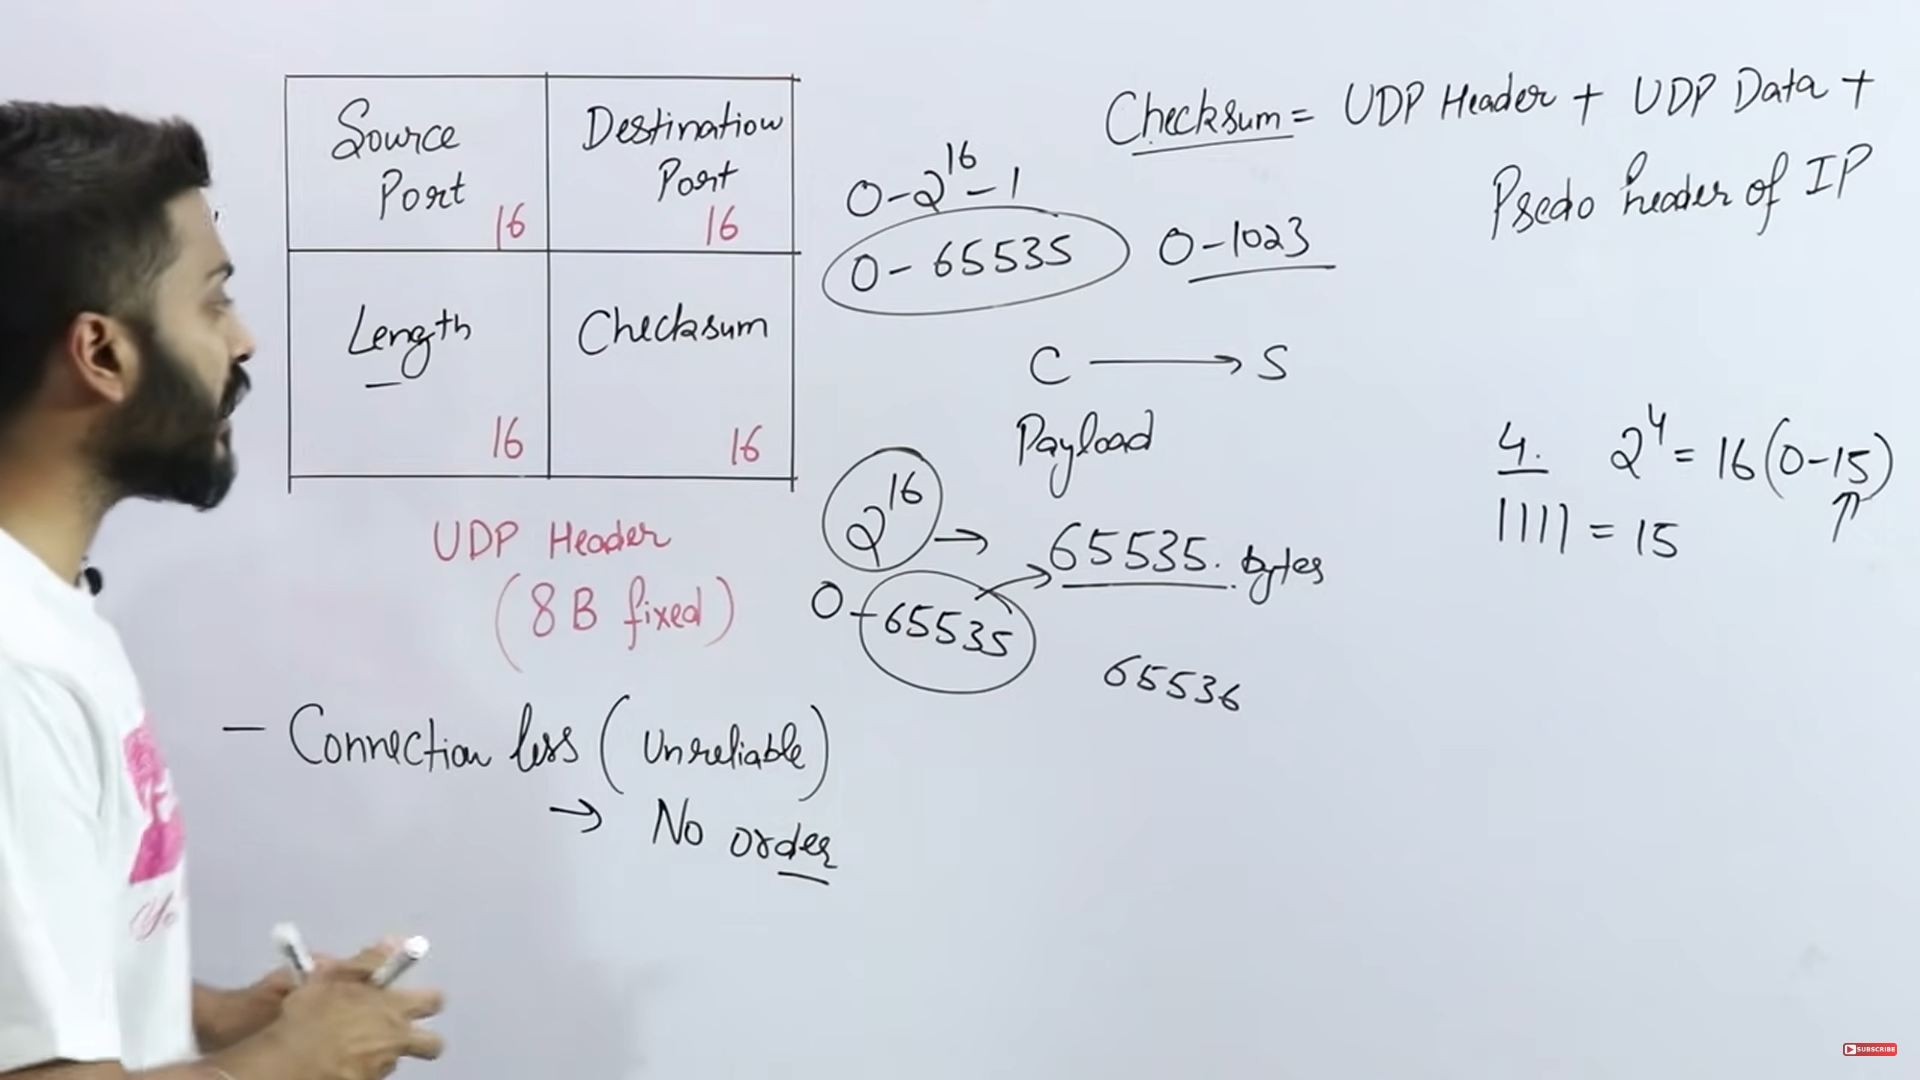 Source
Port
16
Destination
Port
16
Length
16
Checksum
16
UDP Header
(8 B fixed)
- Connection less (Unreliable)
→ No order
0-2^16-1
0-65535
0-1023
C → S
Payload
2^16 → 65535. bytes
0-65535
65536
Checksum = UDP Header + UDP Data +
Psedo header of IP
4. 2^4 = 16(0-15)
1111 = 15
SUBSCRIBE